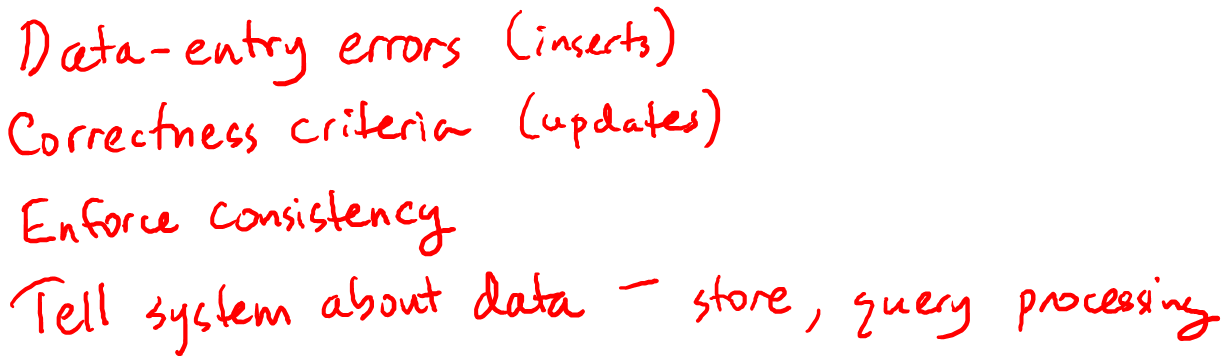 Data-entry errors (inserts)
Correctness criteria (updates)
Enforce consistency
Tell system about data - store, query processing